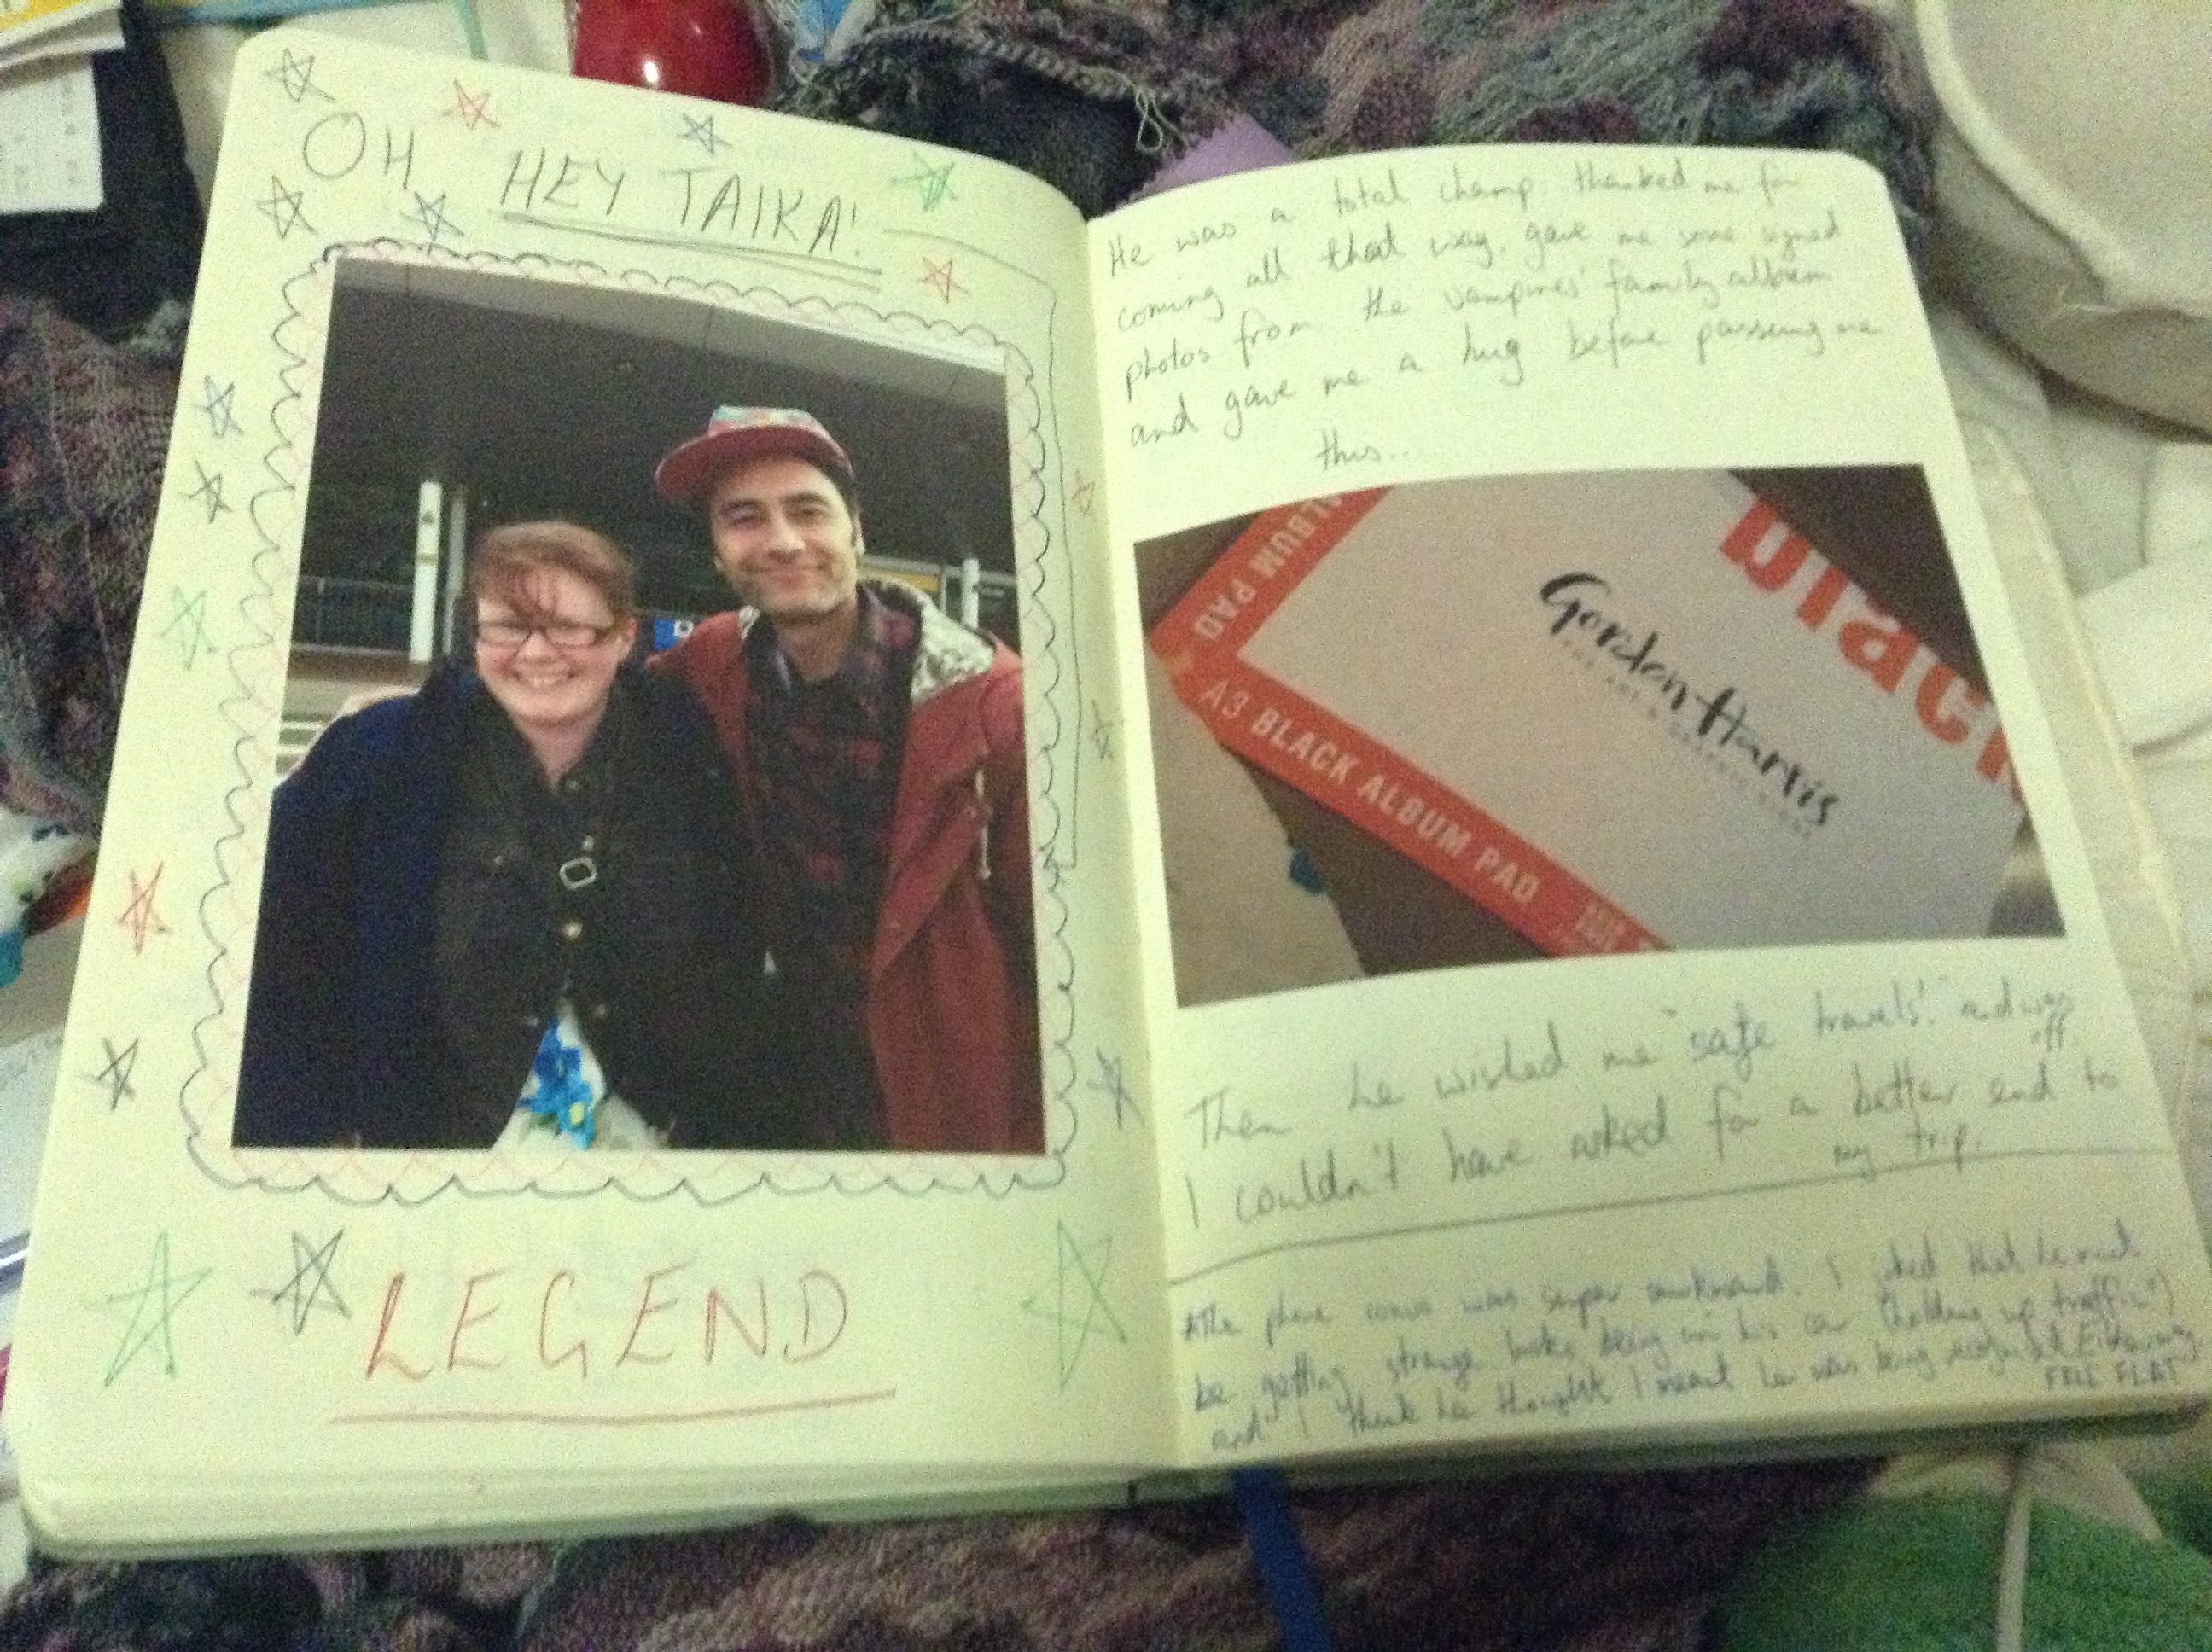 OH HEY TAIKA!
LEGEND
He was a total champ. thanked me for
coming all that way, gave me some signed
photos from the vampires' family album
and gave me a hug before passing me
this...
ALBUM PAD
black
Gordon Harris
A3 BLACK ALBUM PAD
Then he wished me "safe travels" and was
off.
I couldn't have asked for a better end to
my trip.
*The phone convo was super awkward. I joked that he must
be getting strange looks being in his car (holding up traffic)
and I think he thought I meant he was being recognised. Either way
FELL FLAT